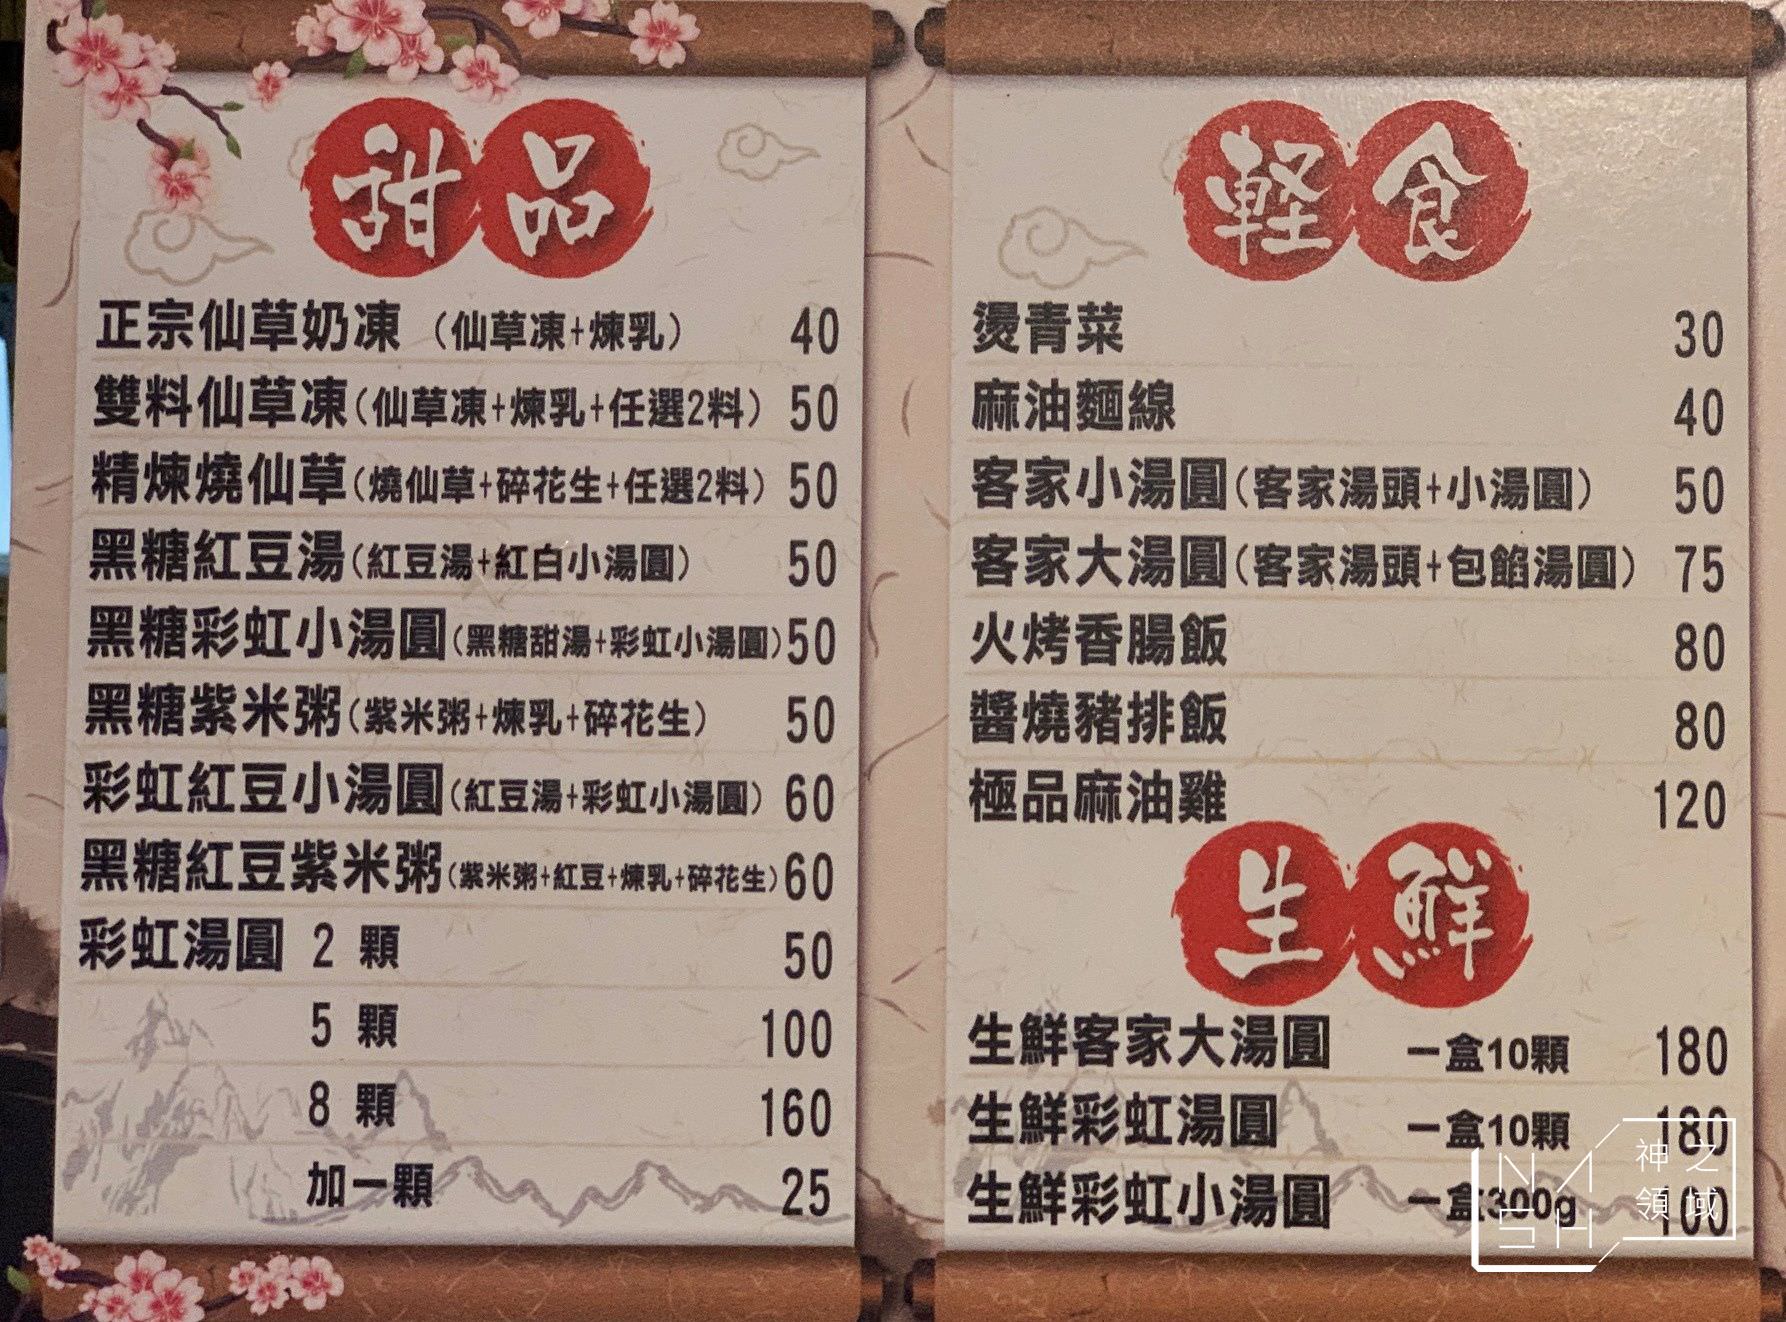 甜品
正宗仙草奶凍 （仙草凍+煉乳） 40
雙料仙草凍（仙草凍+煉乳+任選2料） 50
精煉燒仙草（燒仙草+碎花生+任選2料） 50
黑糖紅豆湯（紅豆湯+紅白小湯圓） 50
黑糖彩虹小湯圓（黑糖甜湯+彩虹小湯圓） 50
黑糖紫米粥（紫米粥+煉乳+碎花生） 50
彩虹紅豆小湯圓（紅豆湯+彩虹小湯圓） 60
黑糖紅豆紫米粥（紫米粥+紅豆+煉乳+碎花生） 60
彩虹湯圓 2 顆 50
5 顆 100
8 顆 160
加一顆 25
軽食
燙青菜 30
麻油麵線 40
客家小湯圓（客家湯頭+小湯圓） 50
客家大湯圓（客家湯頭+包餡湯圓） 75
火烤香腸飯 80
醬燒豬排飯 80
極品麻油雞 120
生鮮
生鮮客家大湯圓 一盒10顆 180
生鮮彩虹湯圓 一盒10顆 180
生鮮彩虹小湯圓 一盒300g 100
NASH
神之領域